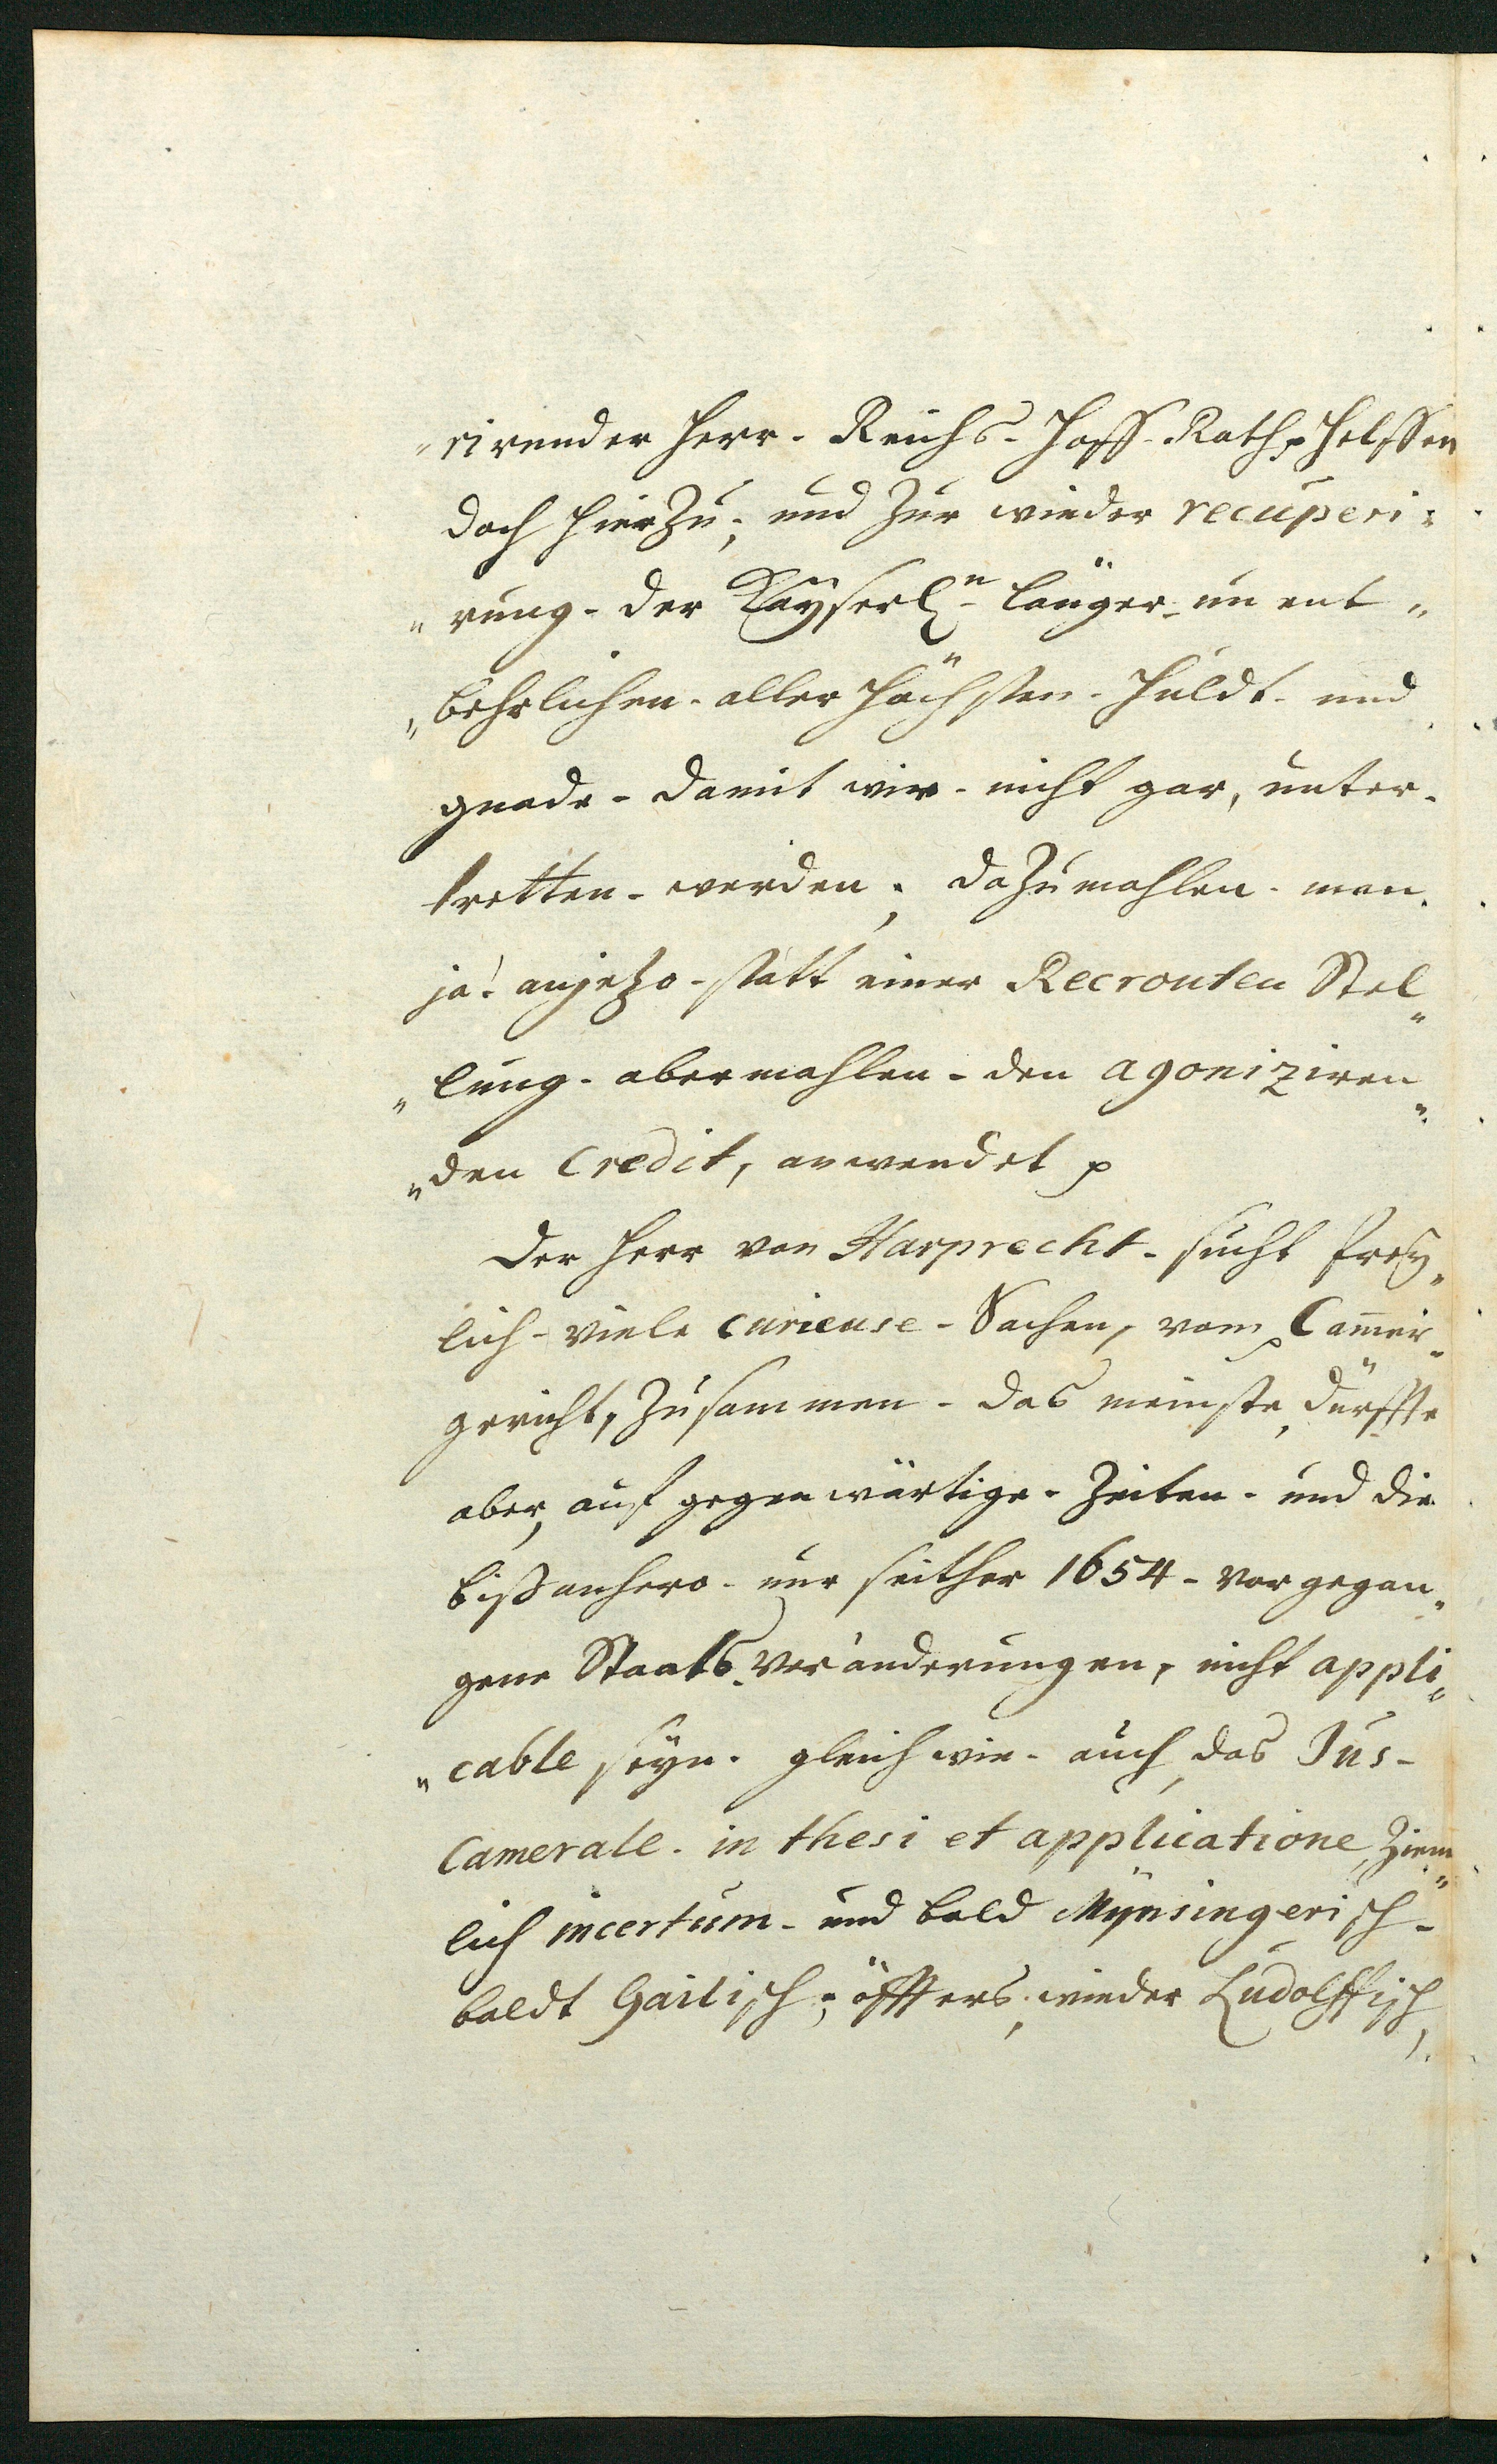 „rirender Herr- Reichs- Hoff- Rath, helffen
doch hierzu; und zur wieder recuperi:
„rung- der Kayserl.n- länger- un ent„
„behrlichen- aller höchsten- Huldt- und
gnade- damit wir- nicht gar, unter-
tretten- werden; dazumahlen- man
ja! anjetzo- statt einer Recrouten Stel„
„lung- abermahlen- den agoniziren„
„den Credit, anwendet p
Der Herr von Harprecht- sucht frey„
lich- viele curieuse- Sachen, vom Cam̄er„
gericht, zusammen- das meinste, dürffte
aber, auf gegenwärtige- Zeiten- und die
bißanhero- nur seither 1654- vorgegan„
gene Staats Veränderungen, nicht appli„
„cable seyn. gleichwie- auch das Jus-
Camerale. in thesi et applicatione, ziem„
lich incertum- und bald Mÿnsingerisch-
baldt Gailisch; öffters, wieder Ludolffisch,